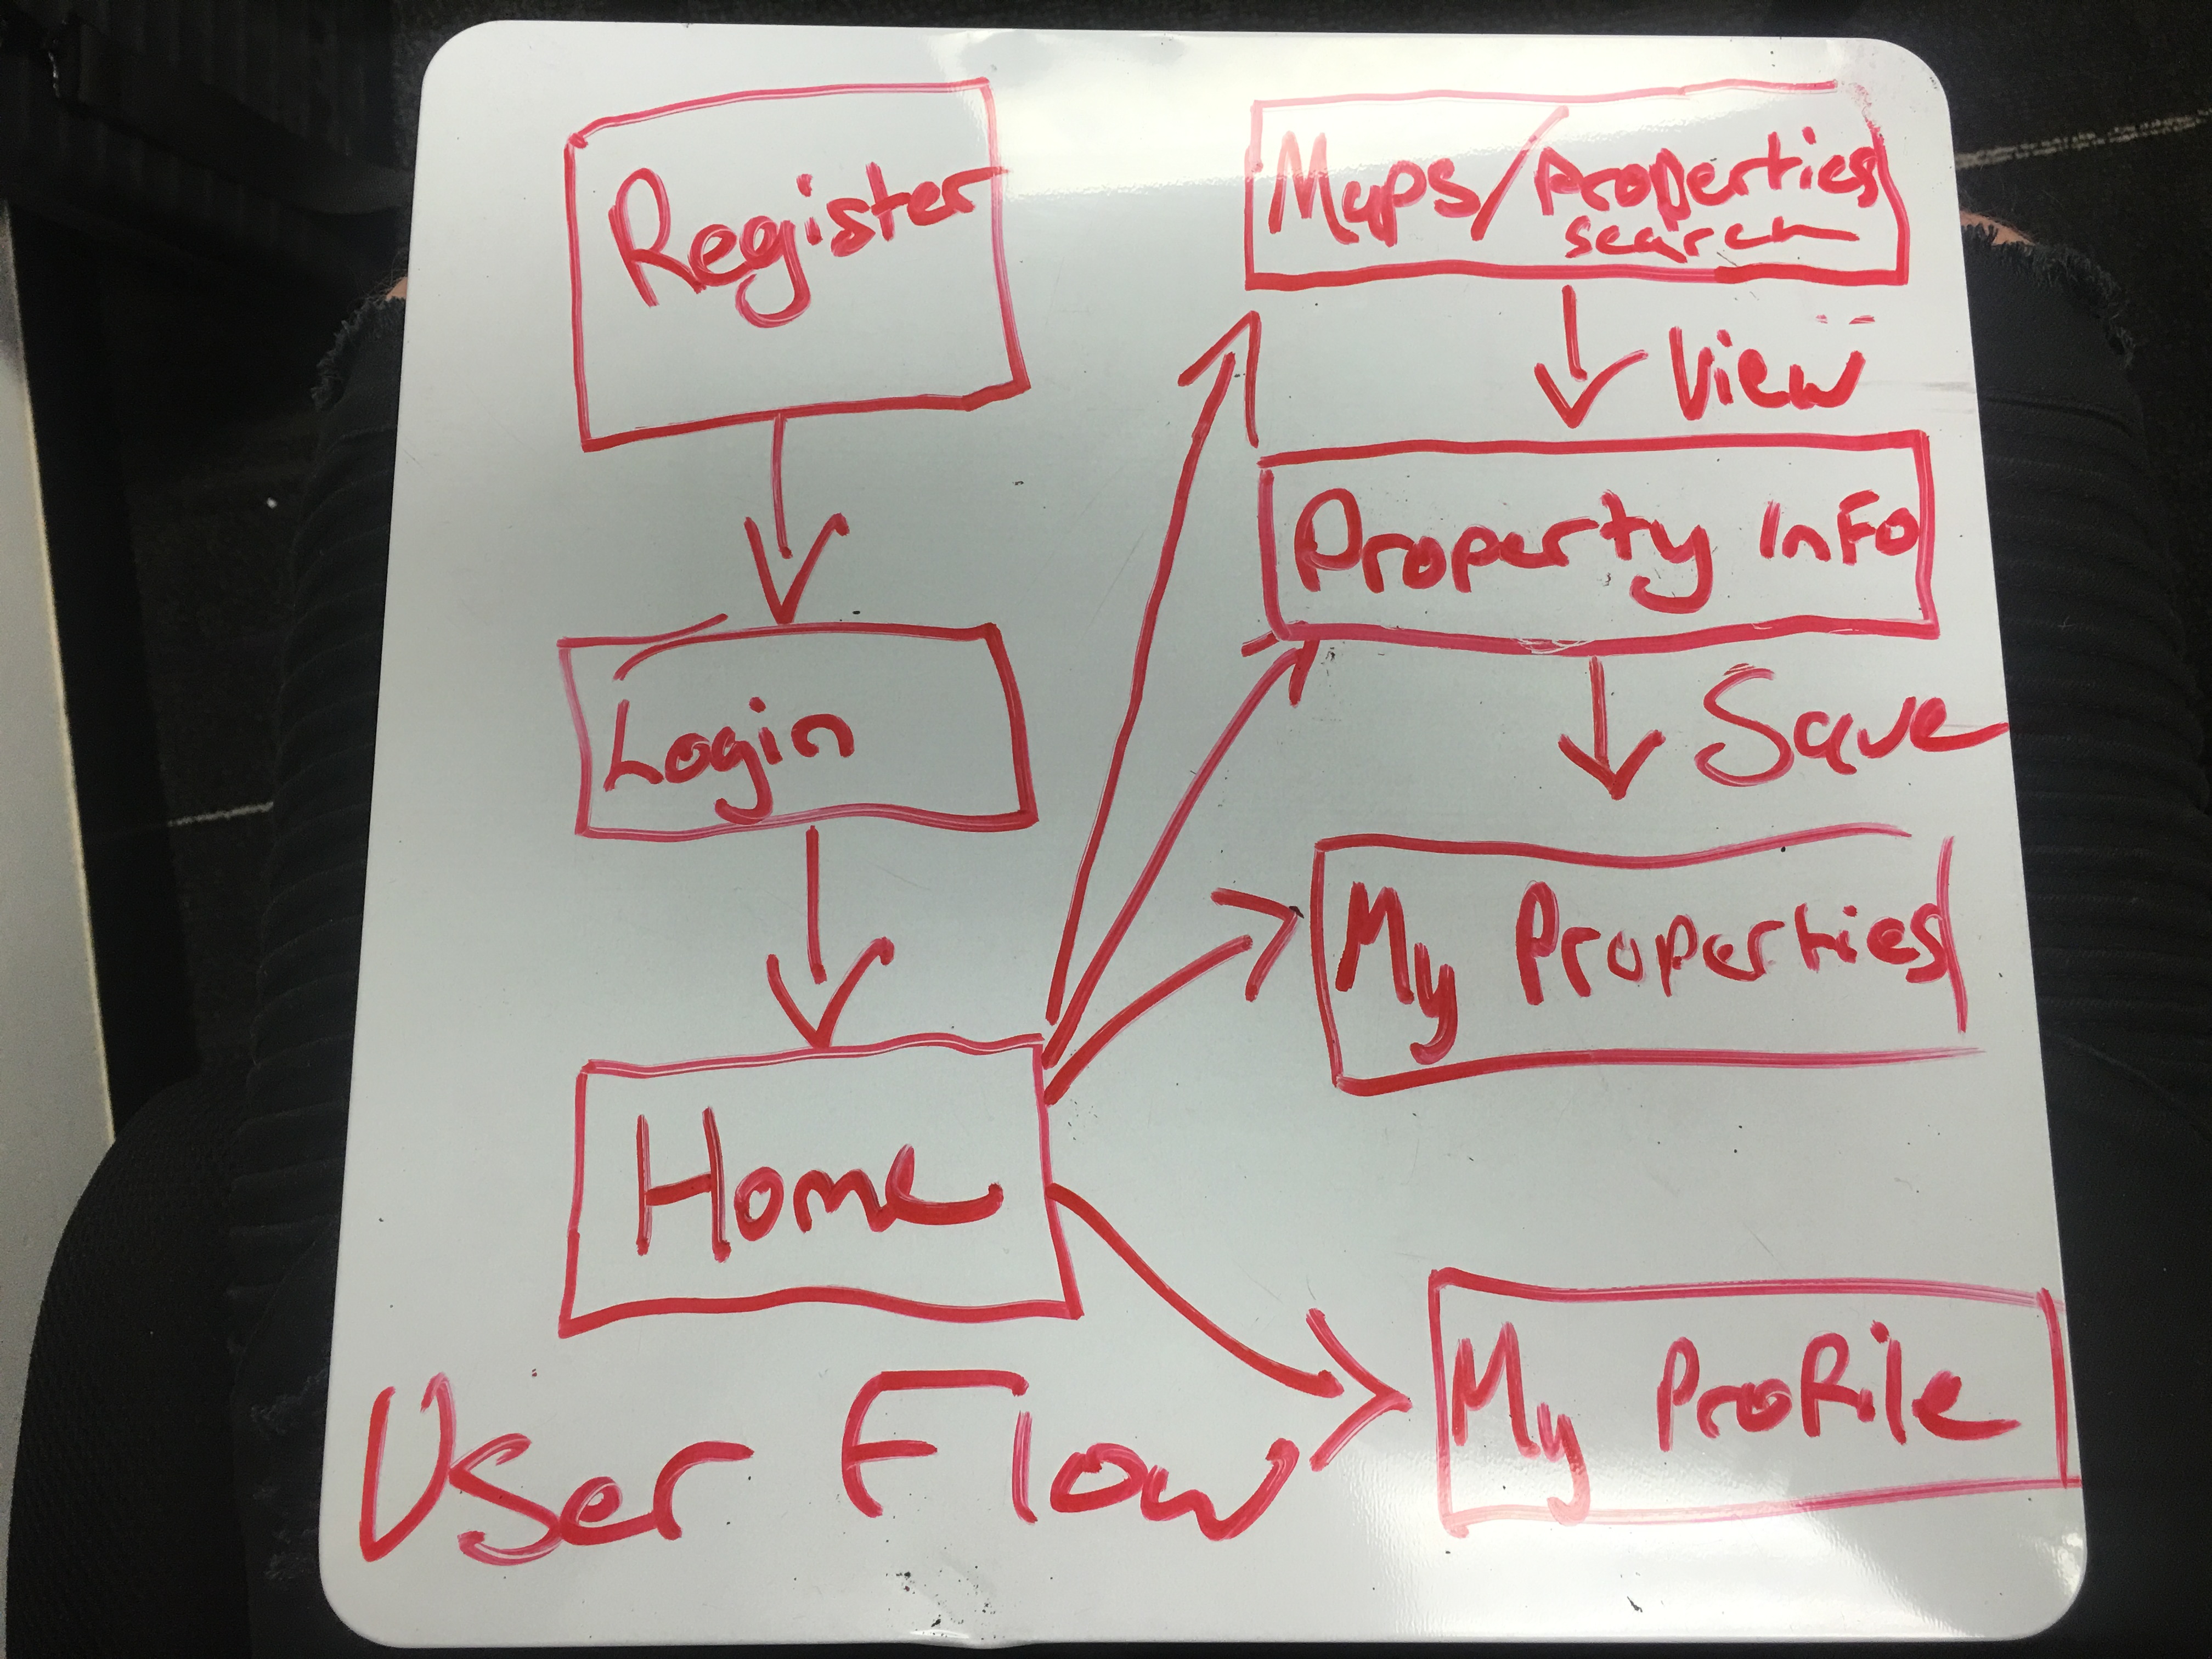 Register
Login
Home
Maps/Properties
search
View
Property Info
Save
My Properties
My Profile
User Flow